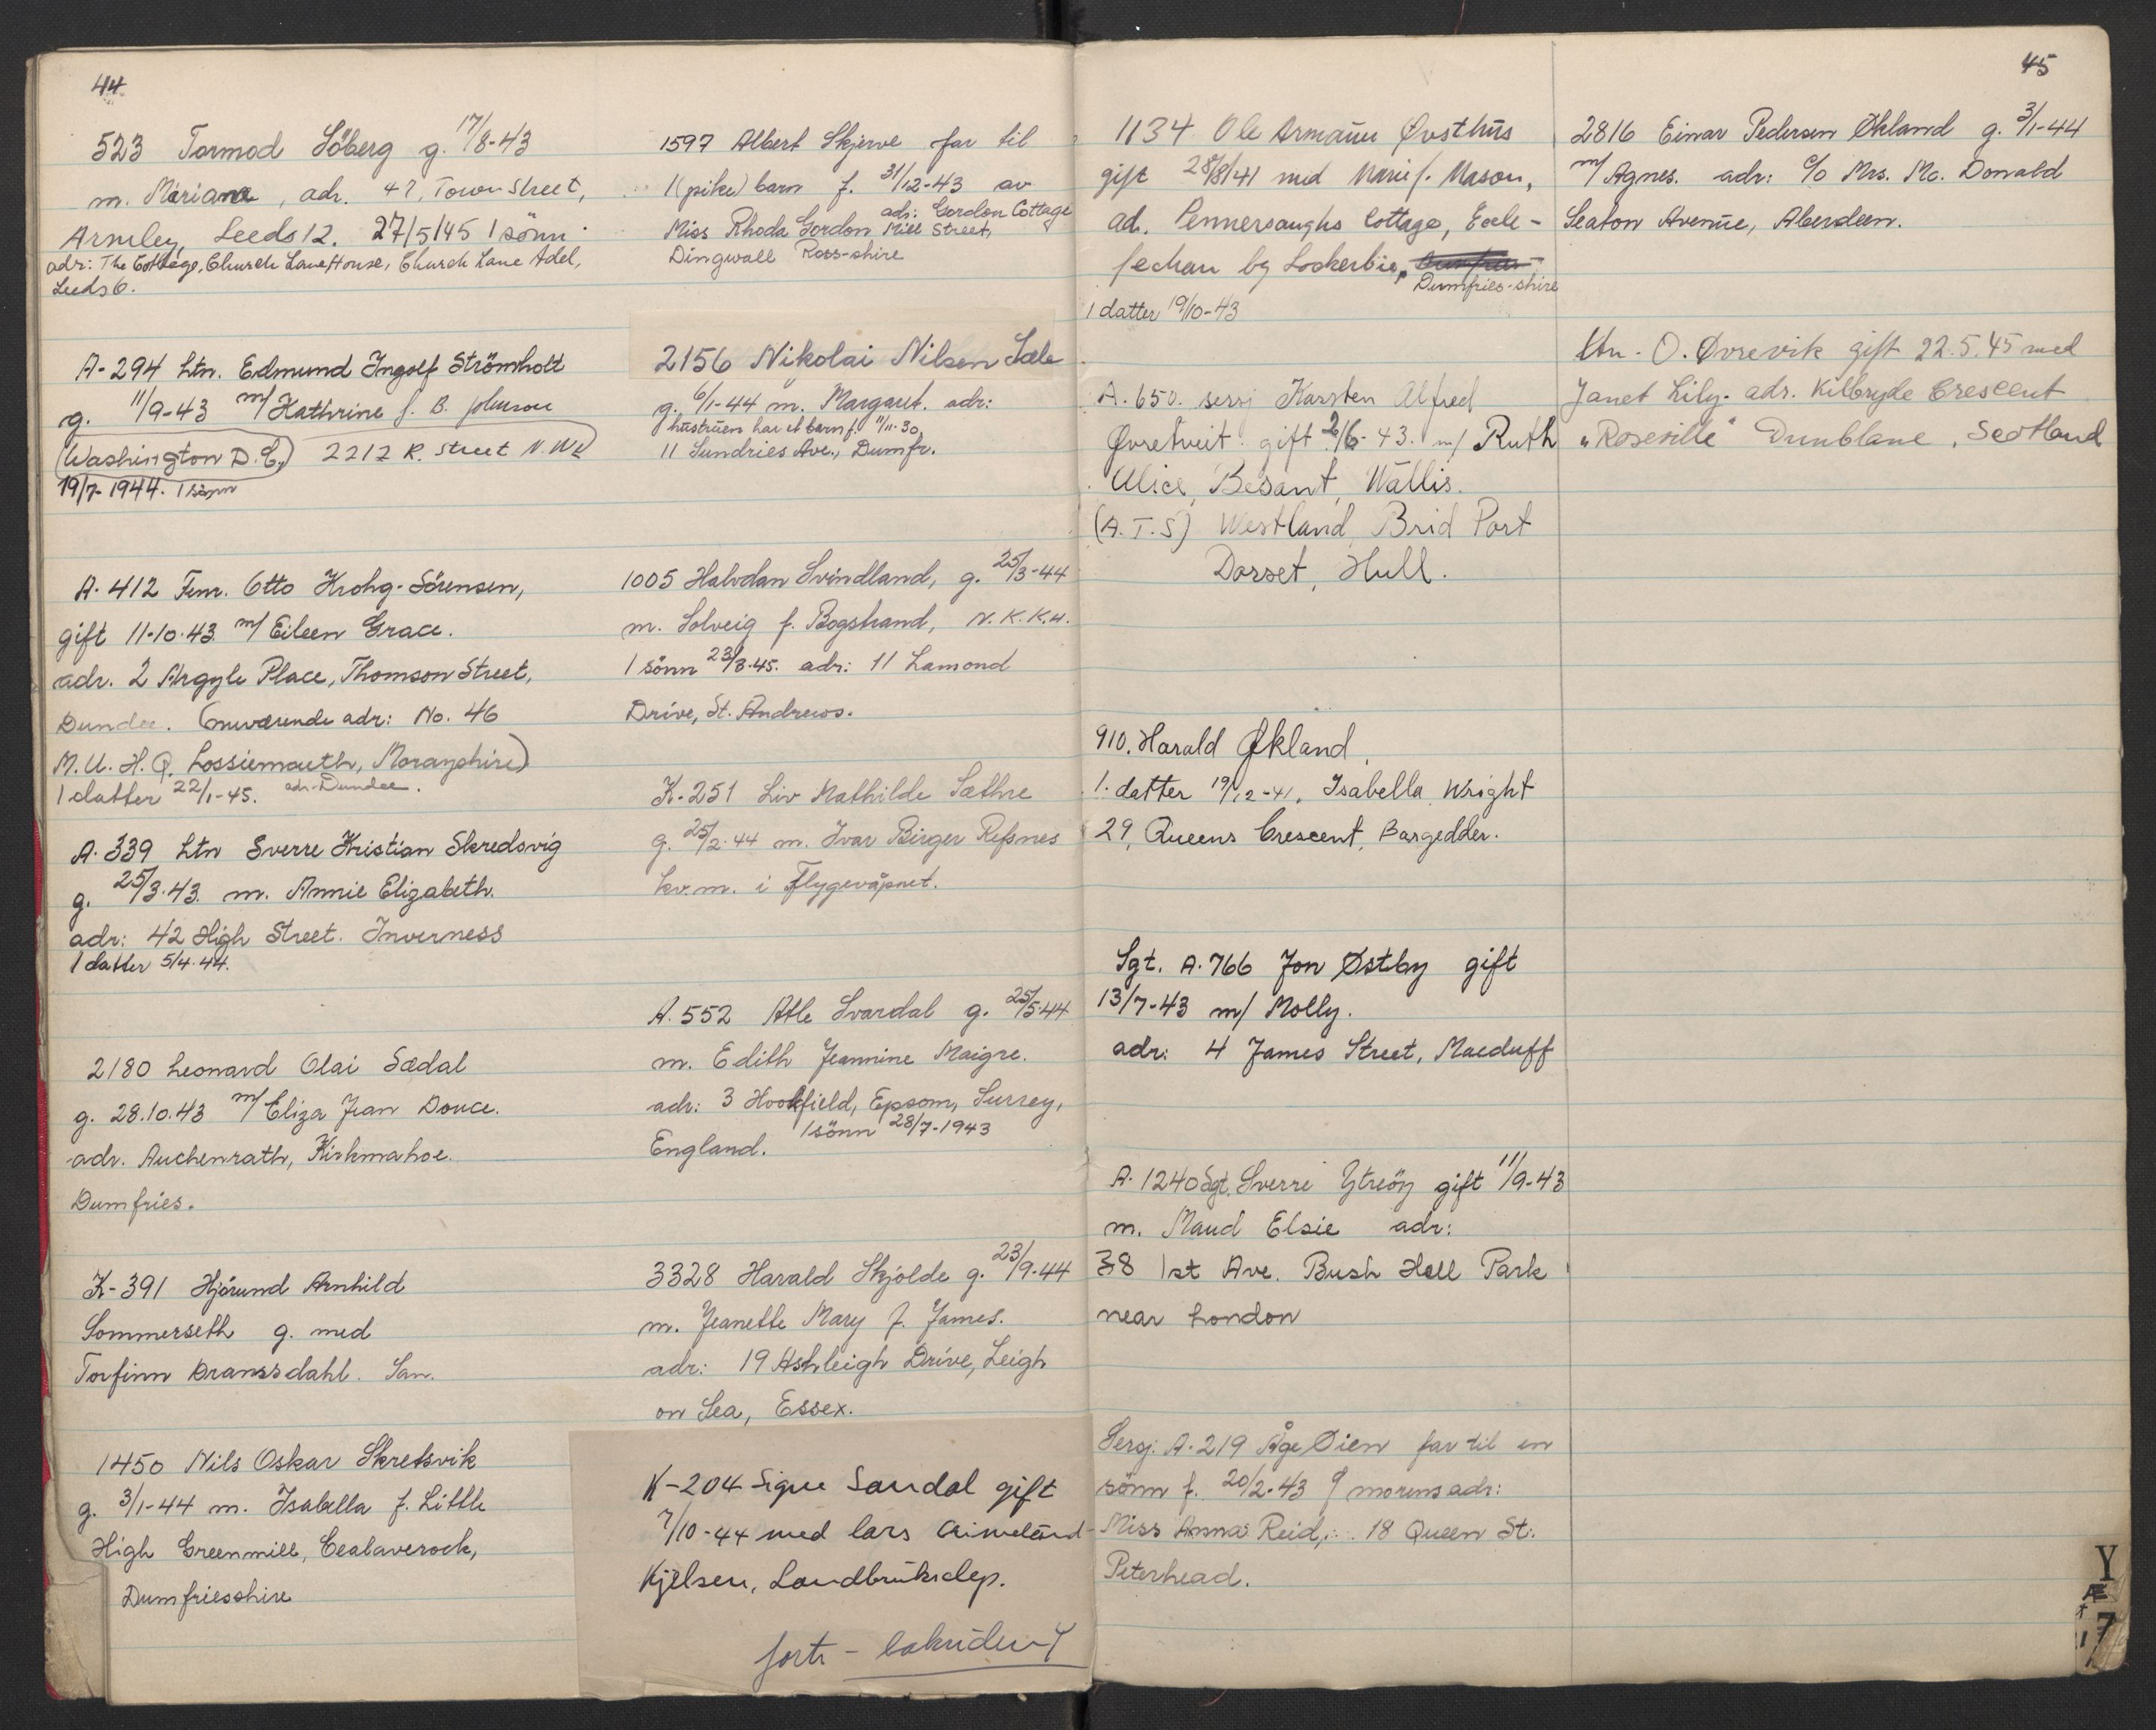 44
523 Tormod Söberg g. 17/8-43
m. Mariana, adr. 47, Town Street,
Armley, Leeds 12. 27/5/45 1 sönn
adr: The Cottage, Church Lane House, Church Lane Adel,
Leeds 6.
A-294 Ltn. Edmund Ingolf Strömholt
g. 11/9-43 m/ Kathrine f. B. Johnson
(Washington D.C.) 2212 R. Street N.W.
19/7-1944. 1 sönn
A-412 Fenr. Otto Krohg-Sörensen,
gift 11-10-43 m/ Eileen Grace.
adr. 2 Argyle Place, Thomson Street,
Dundee. (nuværende adr: No. 46
M.U. H.Q. Lossiemouth, Morayshire)
1 datter 22/1-45. adr. Dundee.
A. 339 Ltn Sverre Kristian Skredsvig
g. 25/3.43. m. Annie Elizabeth.
adr: 42 High Street. Inverness
1 datter 5/4.44.
2180 Leonard Olai Sædal
g. 28.10.43 m/ Eliza Jean Douce.
adr. Auchenrath, Kirkmahoe.
Dumfries.
K-391 Hjörund Arnhild
Sommerseth g. med
Torfinn Dranssdahl. San.
1450 Nils Oskar Skretsvik
g. 3/1-44 m. Isabella f. Little
High Greenmill, Cealaverock,
Dumfriesshire
1597 Albert Skjerve far til
1 (pike) barn f. 31/12-43 av
Miss Rhoda Gordon adr: Gordon Cottage
Mill Street,
Dingwall Ross-shire
2156 Nikolai Nilsen Sæle
g. 6/1-44 m. Margaret. adr:
hustruen har et barn f. 11/11-30
11 Sundries Ave., Dumfr.
1005 Halvdan Svindland, g. 25/3-44
m. Solveig f. Bogstrand, N.K.K.H.
1 sönn 23/3.45. adr: 11 Lamond
Drive, St. Andrews.
K-251 Liv Mathilde Sæthre
g. 25/2.44 m. Ivar Birger Refsnes
kv.m. i Flygevåpnet.
A. 552 Atle Svardal g. 25/5.44
m. Edith Jeannine Maigre.
adr: 3 Hookfield, Epsom, Surrey,
England. 1 sönn 28/7-1943
3328 Harald Skjolde g. 23/9-44
m. Jeanette Mary f. James.
adr: 19 Ashleigh Drive, Leigh
on Sea, Essex.
K-204 Signe Sandal gift
7/10-44 med Lars
Kjelsen, Landbruksdep.
forts -
45
1134 Ole Armann Øvsthus
gift 28/8/41 med Marie f. Mason,
ad. Pennersaughs Cottage, Eccle-
fechan by Lockerbie,
Dumfries-shire
1 datter 19/10-43
A. 650. sersj Karsten Alfred
Øvretveit. gift 2/6-43. m/ Ruth
Alice, Besant, Wallis.
(A.T.S) Westland, Brid Port
Dorset, Hull.
910. Harald Økland,
1. datter 19/12-41. Isabella Wright
29, Queens Crescent, Bargedder.
Sgt. A.766 Jon Østby gift
13/7-43 m/ Molly.
adr: 4 James Street, Macduff
A. 1240 Sgt. Sverre Ytreöy gift 11/9-43
m. Maud Elsie adr:
38 1st Ave. Bush Hell Park
near London
Sersj. A.219 Åge Øien far til en
sönn f. 20/2-43 morens adr:
Miss Anna Reid, 18 Queen St.
Peterhead.
2816 Einar Pedersen Økland g. 3/1-44
m/ Agnes. adr: c/o Mrs. Mc. Donald
Seaton Avenue, Aberdeen.
Ltn. O. Øvrevik gift 22.5.45 med
Janet Lily. adr. Kilbryde Crescent
"Roseville" Dunblane, Scotland
Y
Æ